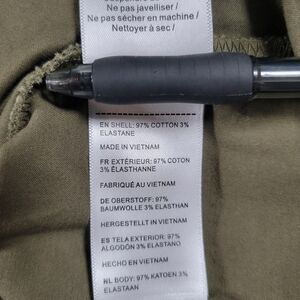 Ne pas javelliser /
Ne pas sécher en machine /
Nettoyer à sec /
EN SHELL: 97% COTTON 3%
ELASTANE
MADE IN VIETNAM
FR EXTÉRIEUR: 97% COTON
3% ÉLASTHANNE
FABRIQUÉ AU VIETNAM
DE OBERSTOFF: 97%
BAUMWOLLE 3% ELASTHAN
HERGESTELLT IN VIETNAM
ES TELA EXTERIOR: 97%
ALGODÓN 3% ELASTANO
HECHO EN VIETNAM
NL BODY: 97% KATOEN 3%
ELASTAAN